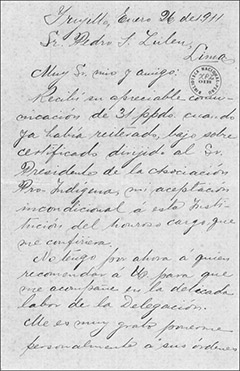 Trujillo, Enero 26 de 1911.
Sr. Pedro S. Zulen,
Lima,
Muy Sr. mio y amigo:
Recibí su apreciable comu-
nicación de 31 ppdo. cuando
ya había reiterado, bajo sobre
certificado dirijido al Sr.
Presidente de la Asociación
Pro-Indígena, mi aceptación
incondicional á esta Insti-
tución del honroso cargo que
me confiriera.
No tengo por ahora a quien
recomendar á U para que
me acompañe en la delicada
labor de la Delegación.
Me es muy grato ponerme
personalmente á sus órdenes